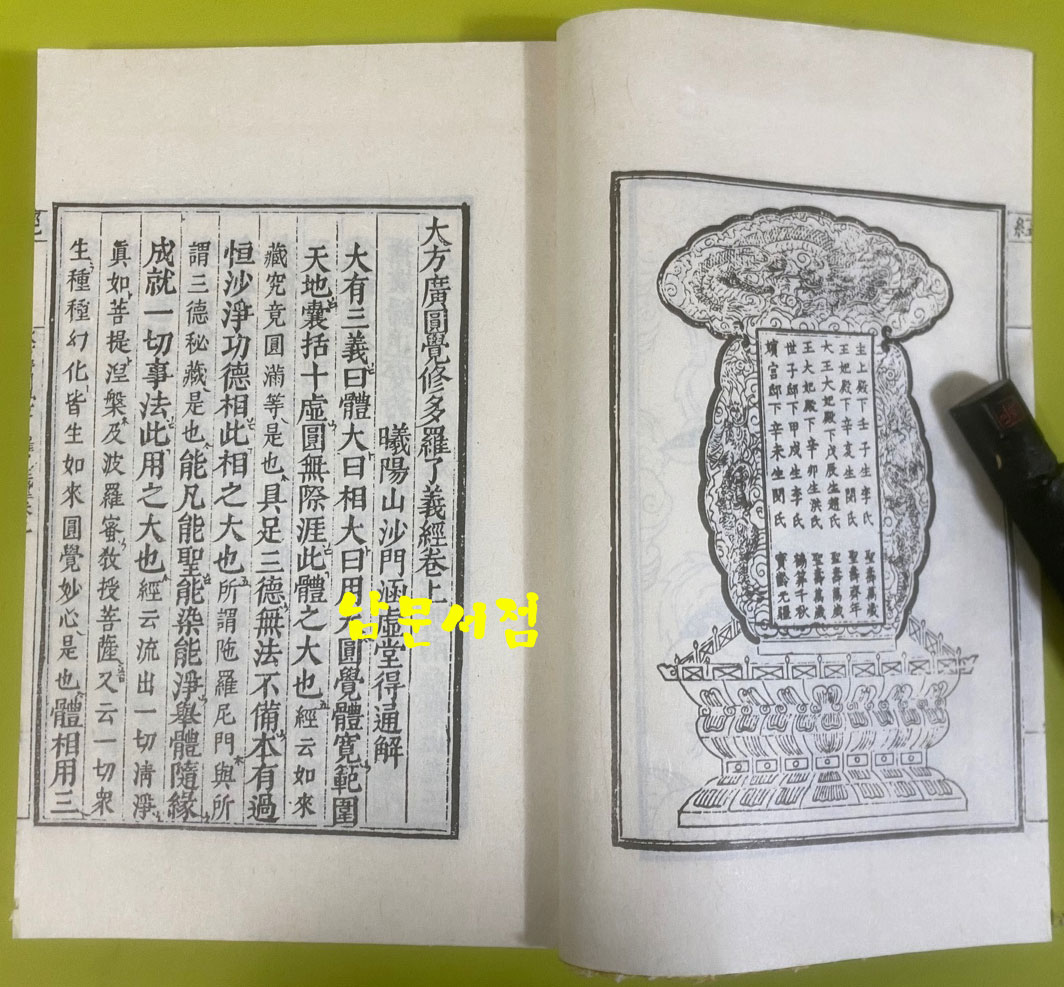 主上殿下壬子生李氏 聖壽萬歲
王妃殿下辛亥生閔氏 聖壽齊年
大王大妃殿下戊辰生趙氏 聖壽萬歲
王大妃殿下辛卯生洪氏 聖壽萬歲
世子邸下甲戌生李氏 錫算千秋
嬪宮邸下辛未生閔氏 寶齡无疆
大方廣圓覺修多羅了義經卷上
曦陽山沙門涵虛堂得通解
大有三義曰體大曰相大曰用大圓覺體寬範圍
天地囊括十虛圓無際涯此體之大也經云如來
藏究竟圓滿等是也具足三德無法不備本有過
恒沙淨功德相此相之大也所謂陁羅尼門與所
謂三德秘藏是也能凡能聖能染能淨舉體隨緣
成就一切事法此用之大也經云流出一切淸淨
眞如菩提涅槃及波羅蜜敎授菩薩又云一切衆
生種種幻化皆生如來圓覺妙心是也體相用三
남문서점